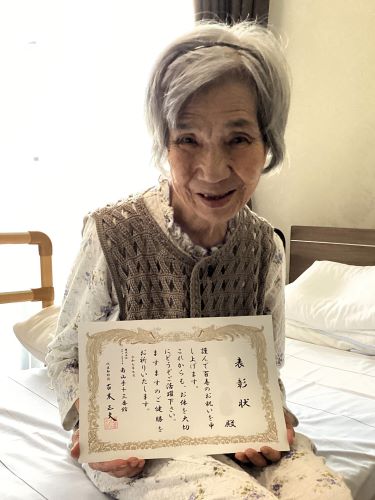 表彰状
殿
謹んで百寿のお祝いを申
し上げます。
これからも、お体を大切
にどうぞご活躍下さい。
ますますのご健勝を
お祈りいたします。
南山手十三番館